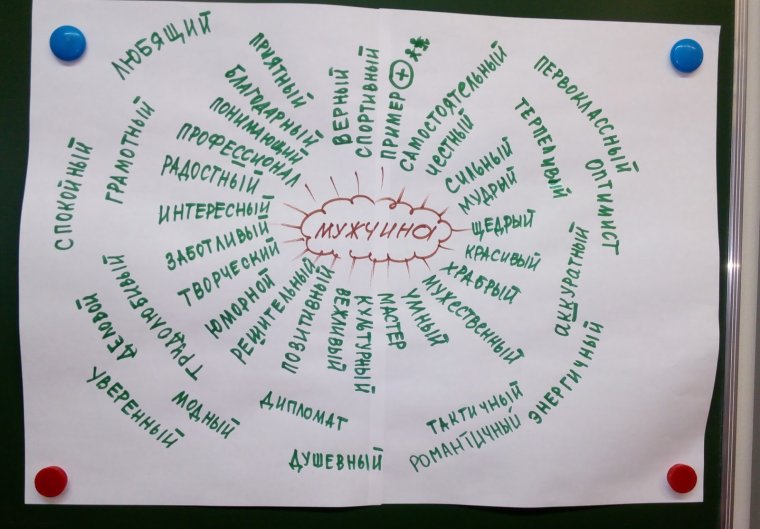 МУЖЧИНА
ВЕРНЫЙ
СПОРТИВНЫЙ
ПРИМЕР
САМОСТОЯТЕЛЬНЫЙ
ЧЕСТНЫЙ
СИЛЬНЫЙ
МУДРЫЙ
ЩЕДРЫЙ
КРАСИВЫЙ
ХРАБРЫЙ
МУЖЕСТВЕННЫЙ
УМНЫЙ
МАСТЕР
КУЛЬТУРНЫЙ
ВЕЖЛИВЫЙ
ПОЗИТИВНЫЙ
РЕШИТЕЛЬНЫЙ
ЮМОРНОЙ
ТВОРЧЕСКИЙ
ЗАБОТЛИВЫЙ
ИНТЕРЕСНЫЙ
РАДОСТНЫЙ
ПРОФЕССИОНАЛ
ПОНИМАЮЩИЙ
БЛАГОДАРНЫЙ
ПРИЯТНЫЙ
ЛЮБЯЩИЙ
ПЕРВОКЛАССНЫЙ
ТЕРПЕЛИВЫЙ
ОПТИМИСТ
АККУРАТНЫЙ
ЭНЕРГИЧНЫЙ
ТАКТИЧНЫЙ
РОМАНТИЧНЫЙ
ДИПЛОМАТ
ДУШЕВНЫЙ
МОДНЫЙ
УВЕРЕННЫЙ
ДЕЛОВОЙ
ТРУДОЛЮБИВЫЙ
СПОКОЙНЫЙ
ГРАМОТНЫЙ